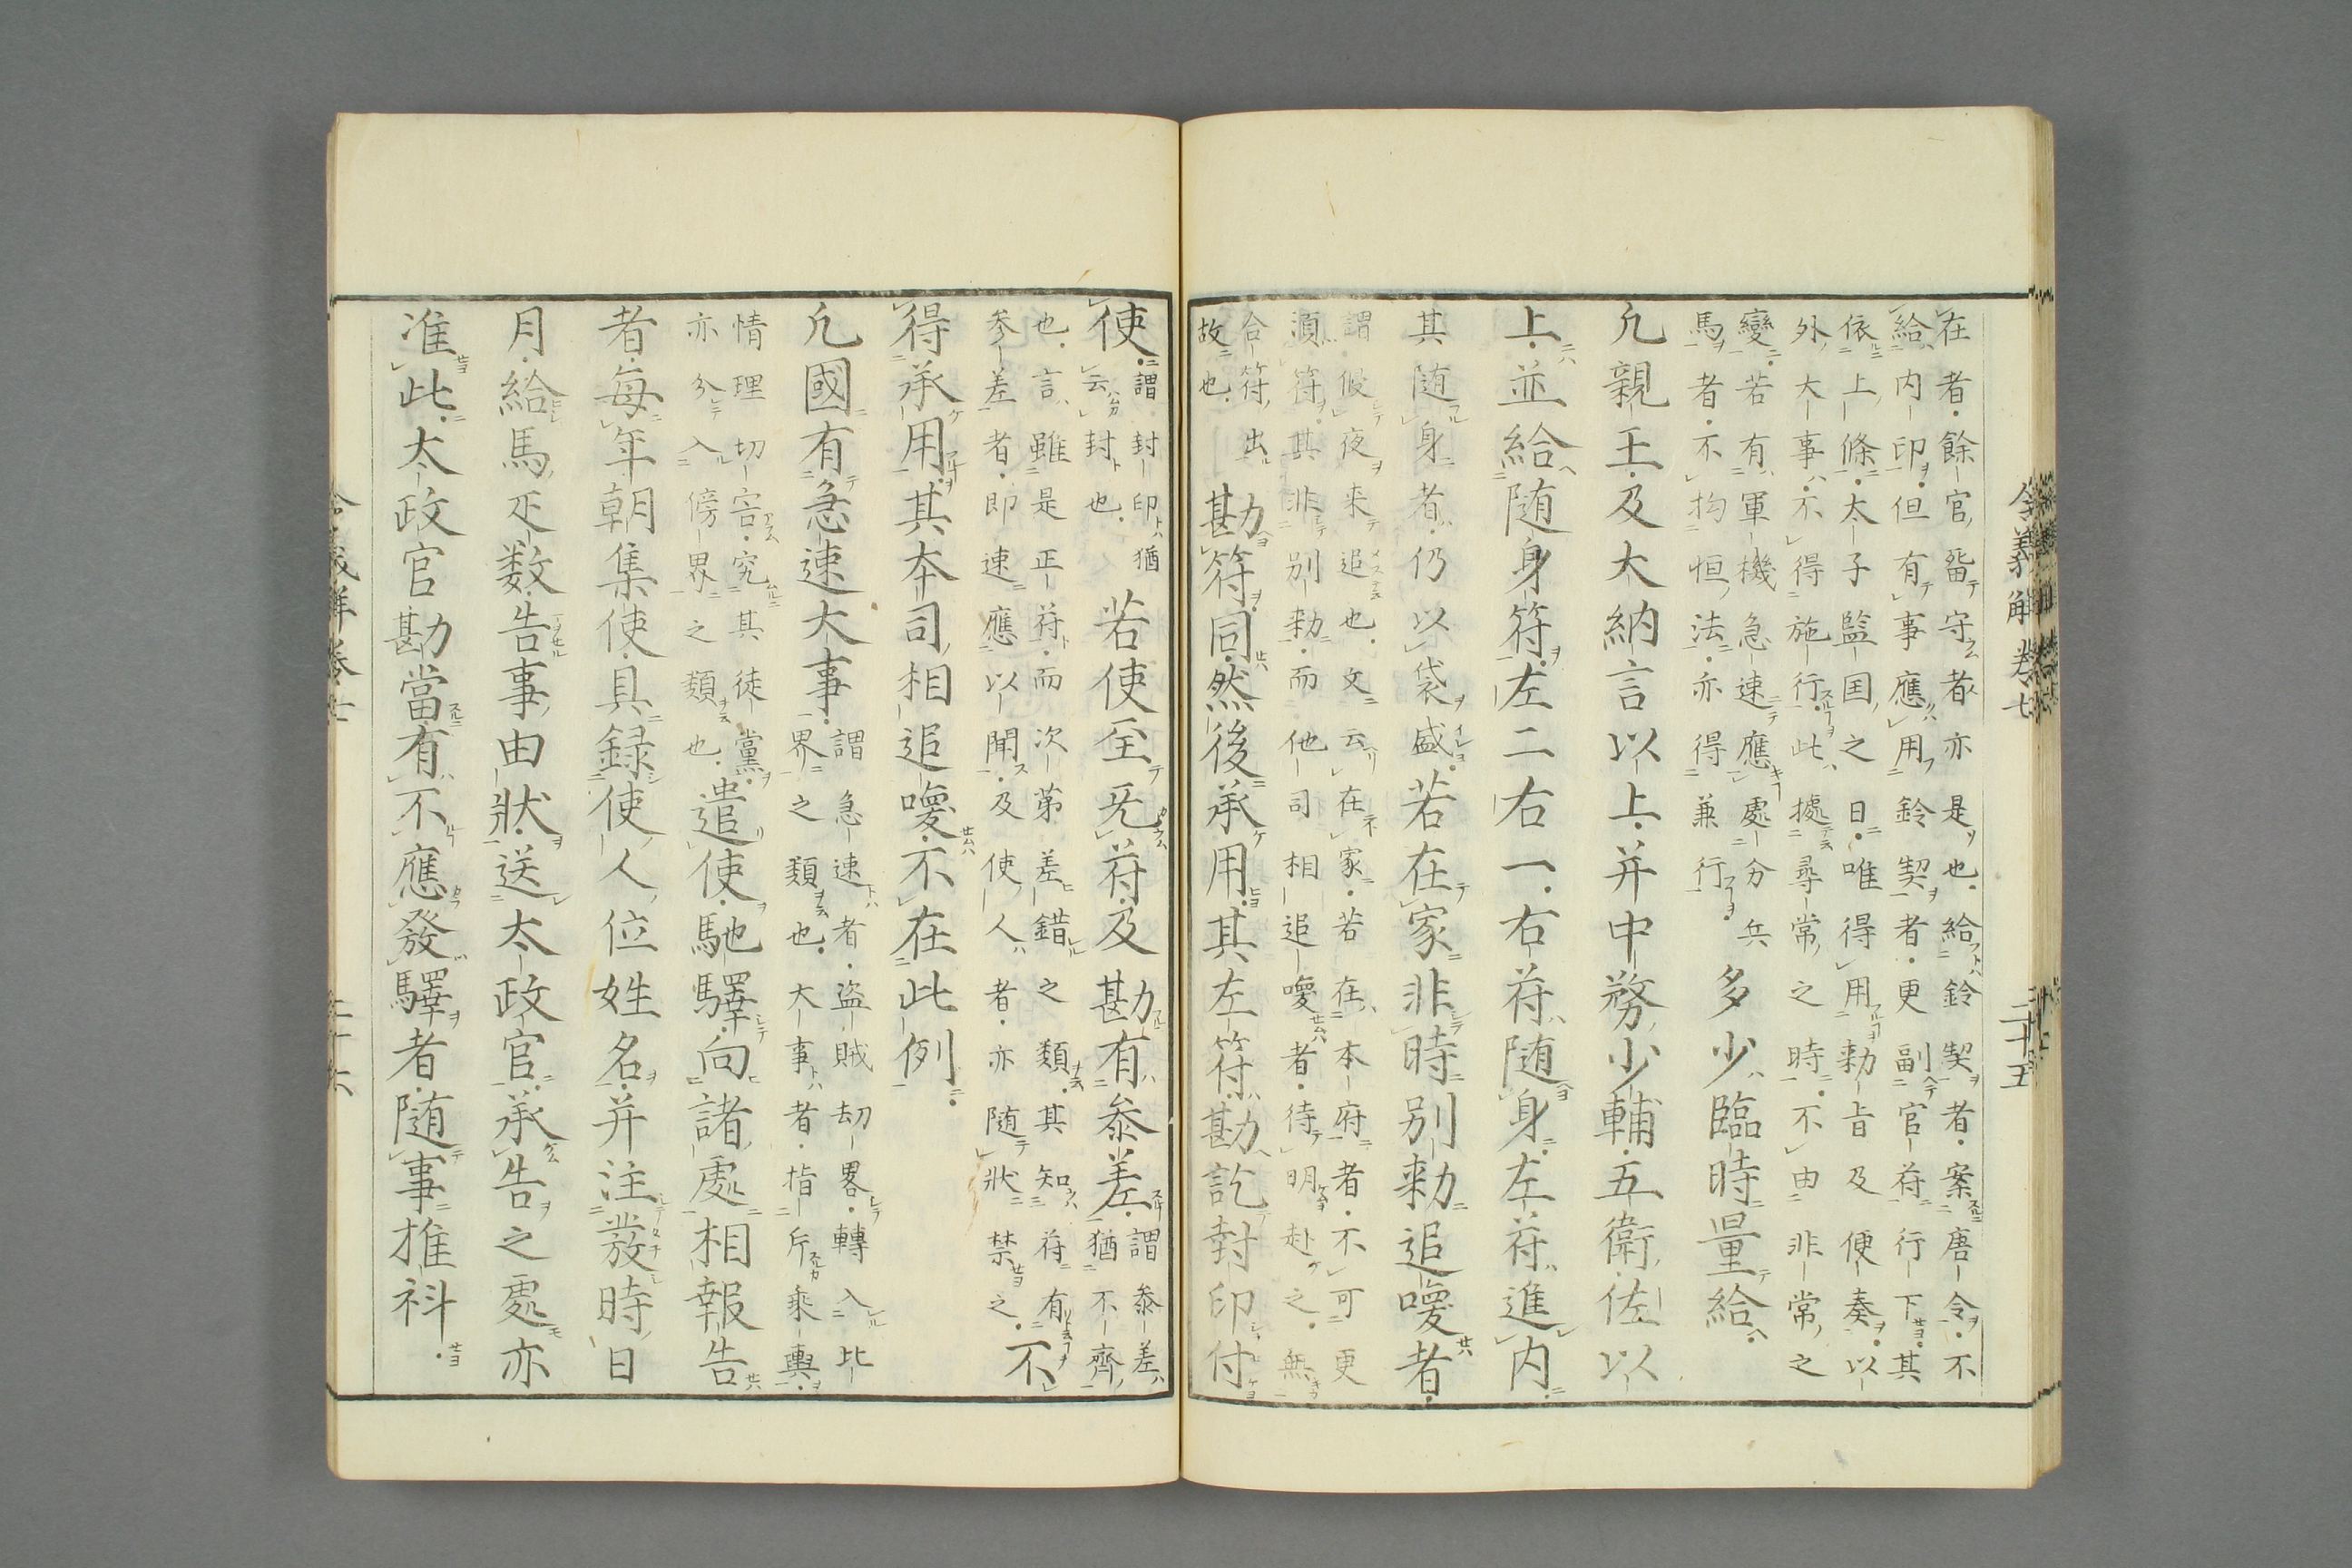 在者餘官畱守者亦是也給鈴契者案唐令不
給内印但有事應用鈴契者更副官苻行下其
依上條太子監国之日唯得用勅旨及便奏以
外大事不得施行此據尋常之時不由非常之
變若有軍機急速應處分兵
馬者不拘恒法亦得兼行
多少臨時量給
凢親王及大納言以上并中務少輔五衛佐以
上並給随身符左二右一右苻随身左苻進内
其随身者仍以袋盛若在家非時別勅追喚者
謂假夜来追也文云在家若在本府者不可更
湏符其非別勅而他司相追喚者待明赴之無
合符出
故也
勘符同然後承用其左符勘訖封印付
使
謂封印猶
云封也
若使至无苻及勘有叅差
謂叅差猶不齊
也言雖是正苻而次第差錯之類其知苻有
参差者即速應以聞及使人者亦随狀禁之
不
得承用其夲司相追喚不在此例
凢國有急速大事
謂急速者盗賊刧畧轉入比
界之類也大事者指斥乘輿
情理切害究其徒黨
亦分入傍界之類也
遣使馳驛向諸處相報告
者每年朝集使具録使人位姓名并注發時日
月給馬疋数告事由狀送太政官承告之處亦
准此太政官勘當有不應發驛者随事推科
令義解卷七
二十五